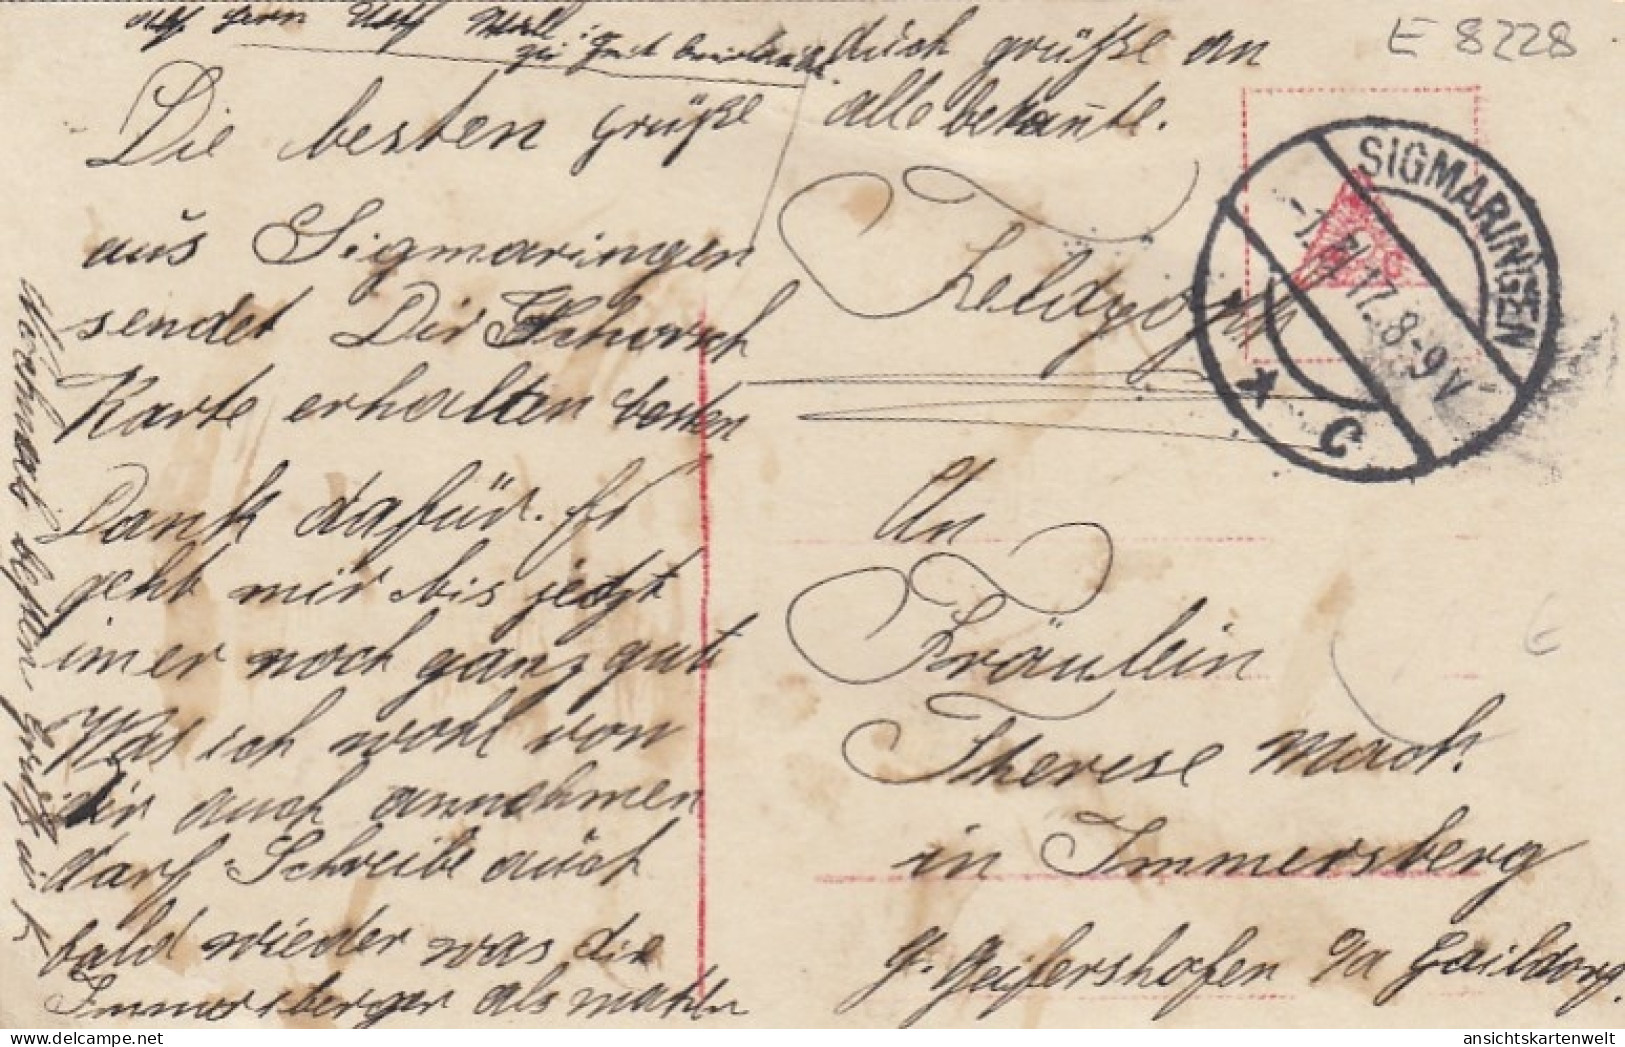 E 8228
auch grüße an
alle bekante.
Die besten Grüße
aus Sigmaringen
sendet Dir Schorsch
Karte erhalten besten
Dank dafür. Es
geht mir bis jetzt
imer noch ganz gut
Was ich wohl von
dir auch annehmen
darf Schreibe auch
bald wieder was die
Immersberger als machen
Nochmals besten Gruß
SIGMARINGEN
17. 8-9 V
* C
Feldpost
An
Fräulein
Therese Mack.
in Immersberg
G. Geifershofen O/A Gaildorf
ansichtskartenwelt